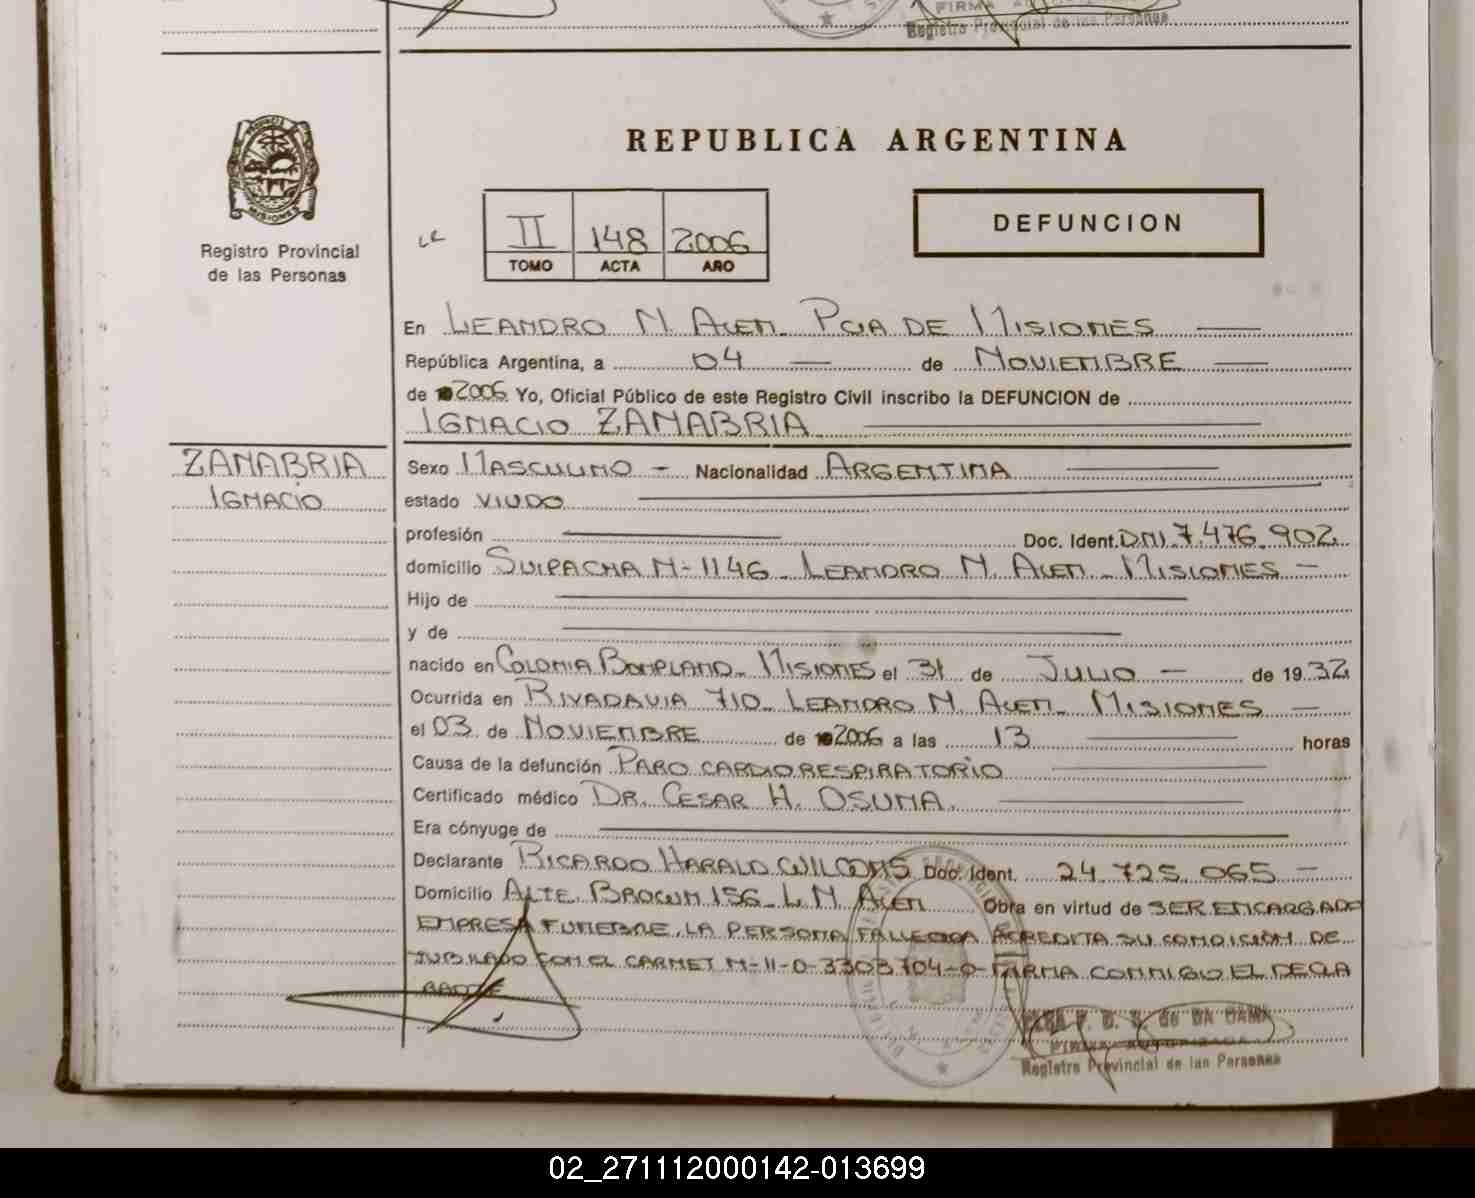 FIRMA
Registro Provincial de las Personas
PROVINCIA
MISIONES
Registro Provincial
de las Personas
REPUBLICA ARGENTINA
II 148 2006
TOMO ACTA AÑO
DEFUNCION
En LEANDRO N. ALEM. PCIA DE MISIONES —
República Argentina, a 04 — de NOVIEMBRE —
de 2006 Yo, Oficial Público de este Registro Civil inscribo la DEFUNCION de
IGNACIO ZANABRIA
ZANABRIA
IGNACIO
Sexo MASCULINO - Nacionalidad ARGENTINA
estado VIUDO
profesión — Doc. Ident. DNI. 7.476.902
domicilio SUIPACHA N-1146. LEANDRO N. ALEM. MISIONES -
Hijo de
y de
nacido en COLONIA BOMPLAND. MISIONES el 31 de JULIO - de 1932
Ocurrida en RIVADAVIA 710. LEANDRO N. ALEM. MISIONES -
el 03 de NOVIEMBRE de 2006 a las 13 — horas
Causa de la defunción PARO CARDIORESPIRATORIO
Certificado médico DR. CESAR H. OSUNA.
Era cónyuge de
Declarante RICARDO HARALD Doc. Ident. 24.725.065 -
Domicilio ALTE. BROWN 156. L N ALEM Obra en virtud de SER ENCARGADO
EMPRESA FUNEBRE. LA PERSONA FALLECIDA ACREDITA SU CONDICION DE
JUBILADO CON EL CARNET N-11-0-3303704-0-FIRMA CONMIGO EL DECLA
RANTE
DE DA GAMA
FIRMA AUTORIZADA
Registro Provincial de las Personas
02_271112000142-013699